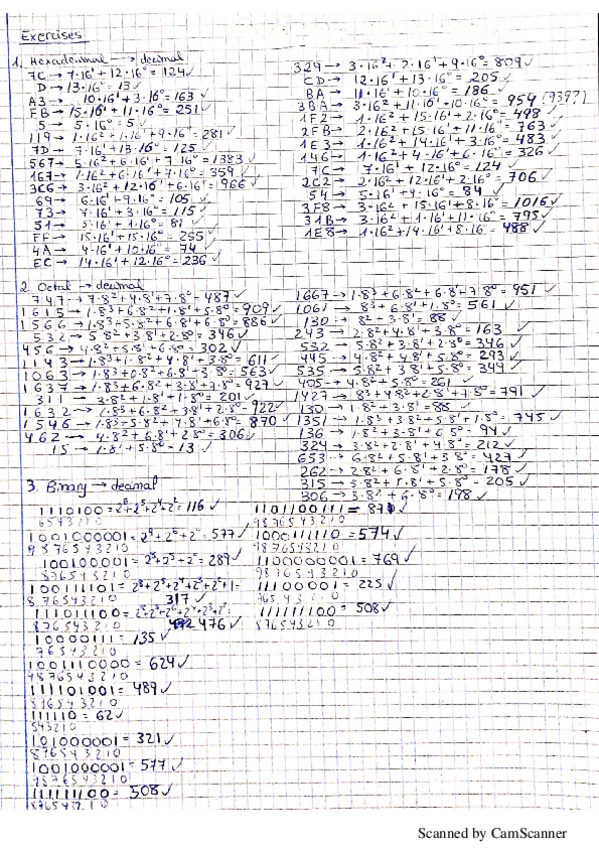 Exercises
1. Hexadecimal → decimal
7C → 7·16¹ + 12·16⁰ = 124 ✓
D → 13·16⁰ = 13 ✓
A3 → 10·16¹ + 3·16⁰ = 163 ✓
FB → 15·16¹ + 11·16⁰ = 251 ✓
5 → 5·16⁰ = 5 ✓
119 → 1·16² + 1·16¹ + 9·16⁰ = 281 ✓
7D → 7·16¹ + 13·16⁰ = 125 ✓
567 → 5·16² + 6·16¹ + 7·16⁰ = 1383 ✓
167 → 1·16² + 6·16¹ + 7·16⁰ = 359 ✓
3C6 → 3·16² + 12·16¹ + 6·16⁰ = 966 ✓
69 → 6·16¹ + 9·16⁰ = 105 ✓
73 → 7·16¹ + 3·16⁰ = 115 ✓
51 → 5·16¹ + 1·16⁰ = 81 ✓
FF → 15·16¹ + 15·16⁰ = 255 ✓
4A → 4·16¹ + 10·16⁰ = 74 ✓
EC → 14·16¹ + 12·16⁰ = 236 ✓
329 → 3·16² + 2·16¹ + 9·16⁰ = 809 ✓
CD → 12·16¹ + 13·16⁰ = 205 ✓
BA → 11·16¹ + 10·16⁰ = 186 ✓
3BA → 3·16² + 11·16¹ + 10·16⁰ = 954 (939?)
1F2 → 1·16² + 15·16¹ + 2·16⁰ = 498 ✓
2FB → 2·16² + 15·16¹ + 11·16⁰ = 763 ✓
1E3 → 1·16² + 14·16¹ + 3·16⁰ = 483 ✓
146 → 1·16² + 4·16¹ + 6·16⁰ = 326 ✓
7C → 7·16¹ + 12·16⁰ = 124 ✓
2C2 → 2·16² + 12·16¹ + 2·16⁰ = 706 ✓
54 → 5·16¹ + 4·16⁰ = 84 ✓
3F8 → 3·16² + 15·16¹ + 8·16⁰ = 1016 ✓
31B → 3·16² + 1·16¹ + 11·16⁰ = 795 ✓
1E8 → 1·16² + 14·16¹ + 8·16⁰ = 488 ✓
2. Octal → decimal
747 → 7·8² + 4·8¹ + 7·8⁰ = 487 ✓
1615 → 1·8³ + 6·8² + 1·8¹ + 5·8⁰ = 909 ✓
1566 → 1·8³ + 5·8² + 6·8¹ + 6·8⁰ = 886 ✓
532 → 5·8² + 3·8¹ + 2·8⁰ = 346 ✓
456 → 4·8² + 5·8¹ + 6·8⁰ = 302 ✓
1143 → 1·8³ + 1·8² + 4·8¹ + 3·8⁰ = 611 ✓
1063 → 1·8³ + 0·8² + 6·8¹ + 3·8⁰ = 563 ✓
1637 → 1·8³ + 6·8² + 3·8¹ + 7·8⁰ = 927 ✓
311 → 3·8² + 1·8¹ + 1·8⁰ = 201 ✓
1632 → 1·8³ + 6·8² + 3·8¹ + 2·8⁰ = 922 ✓
1546 → 1·8³ + 5·8² + 4·8¹ + 6·8⁰ = 870 ✓
462 → 4·8² + 6·8¹ + 2·8⁰ = 306 ✓
15 → 1·8¹ + 5·8⁰ = 13 ✓
1667 → 1·8³ + 6·8² + 6·8¹ + 7·8⁰ = 951 ✓
1061 → 8³ + 6·8¹ + 1·8⁰ = 561 ✓
130 → 8² + 3·8¹ = 88 ✓
243 → 2·8² + 4·8¹ + 3·8⁰ = 163 ✓
532 → 5·8² + 3·8¹ + 2·8⁰ = 346 ✓
445 → 4·8² + 4·8¹ + 5·8⁰ = 293 ✓
535 → 5·8² + 3·8¹ + 5·8⁰ = 349 ✓
405 → 4·8² + 5·8⁰ = 261 ✓
1427 → 8³ + 4·8² + 2·8¹ + 7·8⁰ = 791 ✓
130 → 1·8² + 3·8¹ = 88 ✓
1351 → 1·8³ + 3·8² + 5·8¹ + 1·8⁰ = 745 ✓
136 → 1·8² + 3·8¹ + 6·8⁰ = 94 ✓
324 → 3·8² + 2·8¹ + 4·8⁰ = 212 ✓
653 → 6·8² + 5·8¹ + 3·8⁰ = 427 ✓
262 → 2·8² + 6·8¹ + 2·8⁰ = 178 ✓
315 → 3·8² + 1·8¹ + 5·8⁰ = 205 ✓
306 → 3·8² + 6·8⁰ = 198 ✓
3. Binary → decimal
1110100 = 2⁶ + 2⁵ + 2⁴ + 2² = 116 ✓
6543210
1001000001 = 2⁹ + 2⁶ + 2⁰ = 577 ✓
9876543210
100100001 = 2⁸ + 2⁵ + 2⁰ = 289 ✓
876543210
100111101 = 2⁸ + 2⁵ + 2⁴ + 2³ + 2² + 1 =
876543210 317 ✓
111011100 =
876543210 476 ✓
10000111 = 135 ✓
76543210
1001110000 = 624 ✓
9876543210
111101001 = 489 ✓
876543210
111110 = 62 ✓
543210
101000001 = 321 ✓
876543210
1001000001 = 577 ✓
9876543210
111111100 = 508 ✓
876543210
1101100111 = 871 ✓
9876543210
1000111110 = 574 ✓
9876543210
1100000001 = 769 ✓
9876543210
11100001 = 225 ✓
76543210
111111100 = 508 ✓
876543210
Scanned by CamScanner